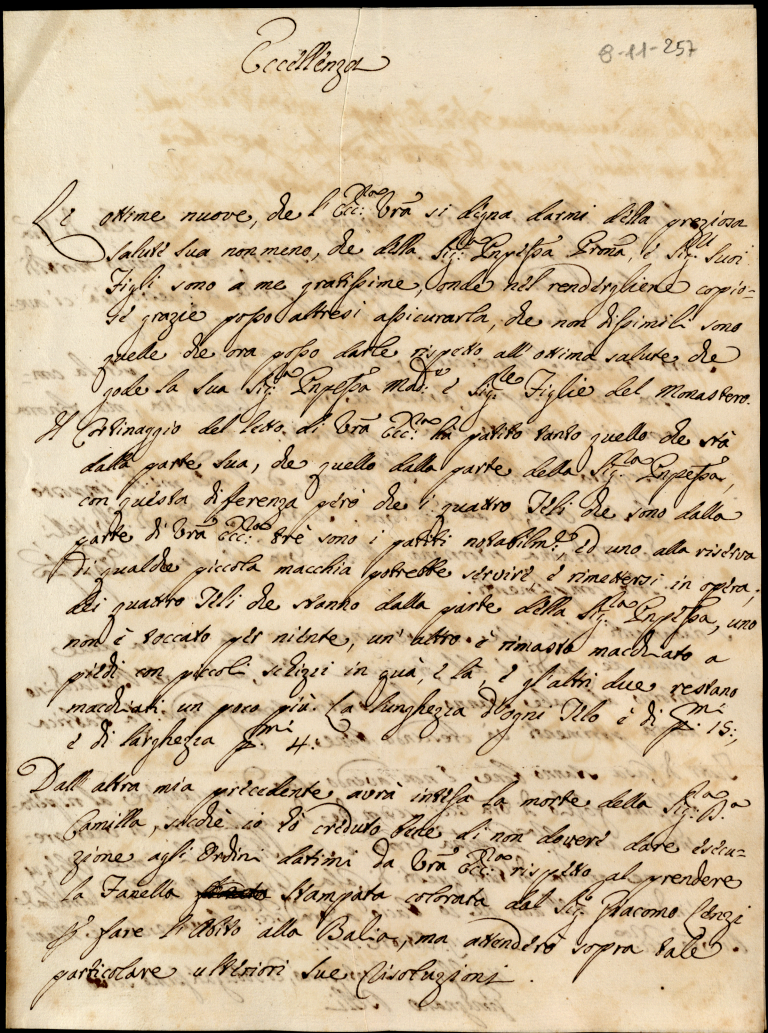 8-11-257
Eccellenza
Le ottime nuove, che l'Ecc:za Vrã si digna darmi della preziosa
salute sua non meno, che della Sig:ra Pnpessa Pronã, e Sig:ri Suoi
Figli sono a me gratissime, onde nel rendergliene copio=
se grazie posso altresi assicurarla, che non dissimili sono
quelle che ora posso darle rispetto all'ottima salute che
gode la sua Sig:ra Pnpessa Mad:e e Sig:re Figlie del Monastero.
Il Cortinaggio del letto di Vrã Ecc:za hà patito tanto quello che stà
dalla parte sua, che quello dalla parte della Sig:ra Pnpessa,
con questa diferenza però che i quattro Teli che sono dalla
parte di Vrã Ecc:za trè sono i patiti notabilm:e, ed uno alla riserva
di qualche piccola macchia potrebbe servire, e rimettersi in opera,
dei quattro Teli che stanno dalla parte della Sig:ra Pnpessa, uno
non è toccato per niente, un'altro è rimasto macchiato a
piedi con piccoli schizzi in quà, e là, e gl'altri due restano
macchiati un poco più. La lunghezza d'ogni Telo è di p:mi 15:,
e di larghezza p:mi 4:
Dall'altra mia precedente avrà intesa la morte della Sig:ra D.a
Camilla, sicchè io hò creduto bene di non dovere dare esecu=
zione agli Ordini datimi da Vrã Ecc:za rispetto al prendere
la Fanella stampata colorata dal Sig:r Giacomo Cenzi
p: fare l'Abito alla Balia, ma attenderò sopra tale
particolare ulteriori sue risoluzioni.